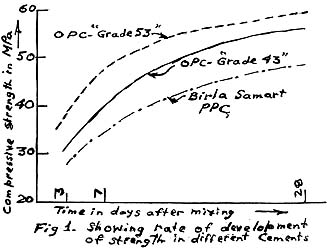 60
OPC-"Grade 53"
50
OPC-"Grade 43"
40
Birla Samart
PPC
30
20
3
7
28
Compressive strength in MPa
Time in days after mixing
Fig 1- Showing rate of development
of strength in different Cements